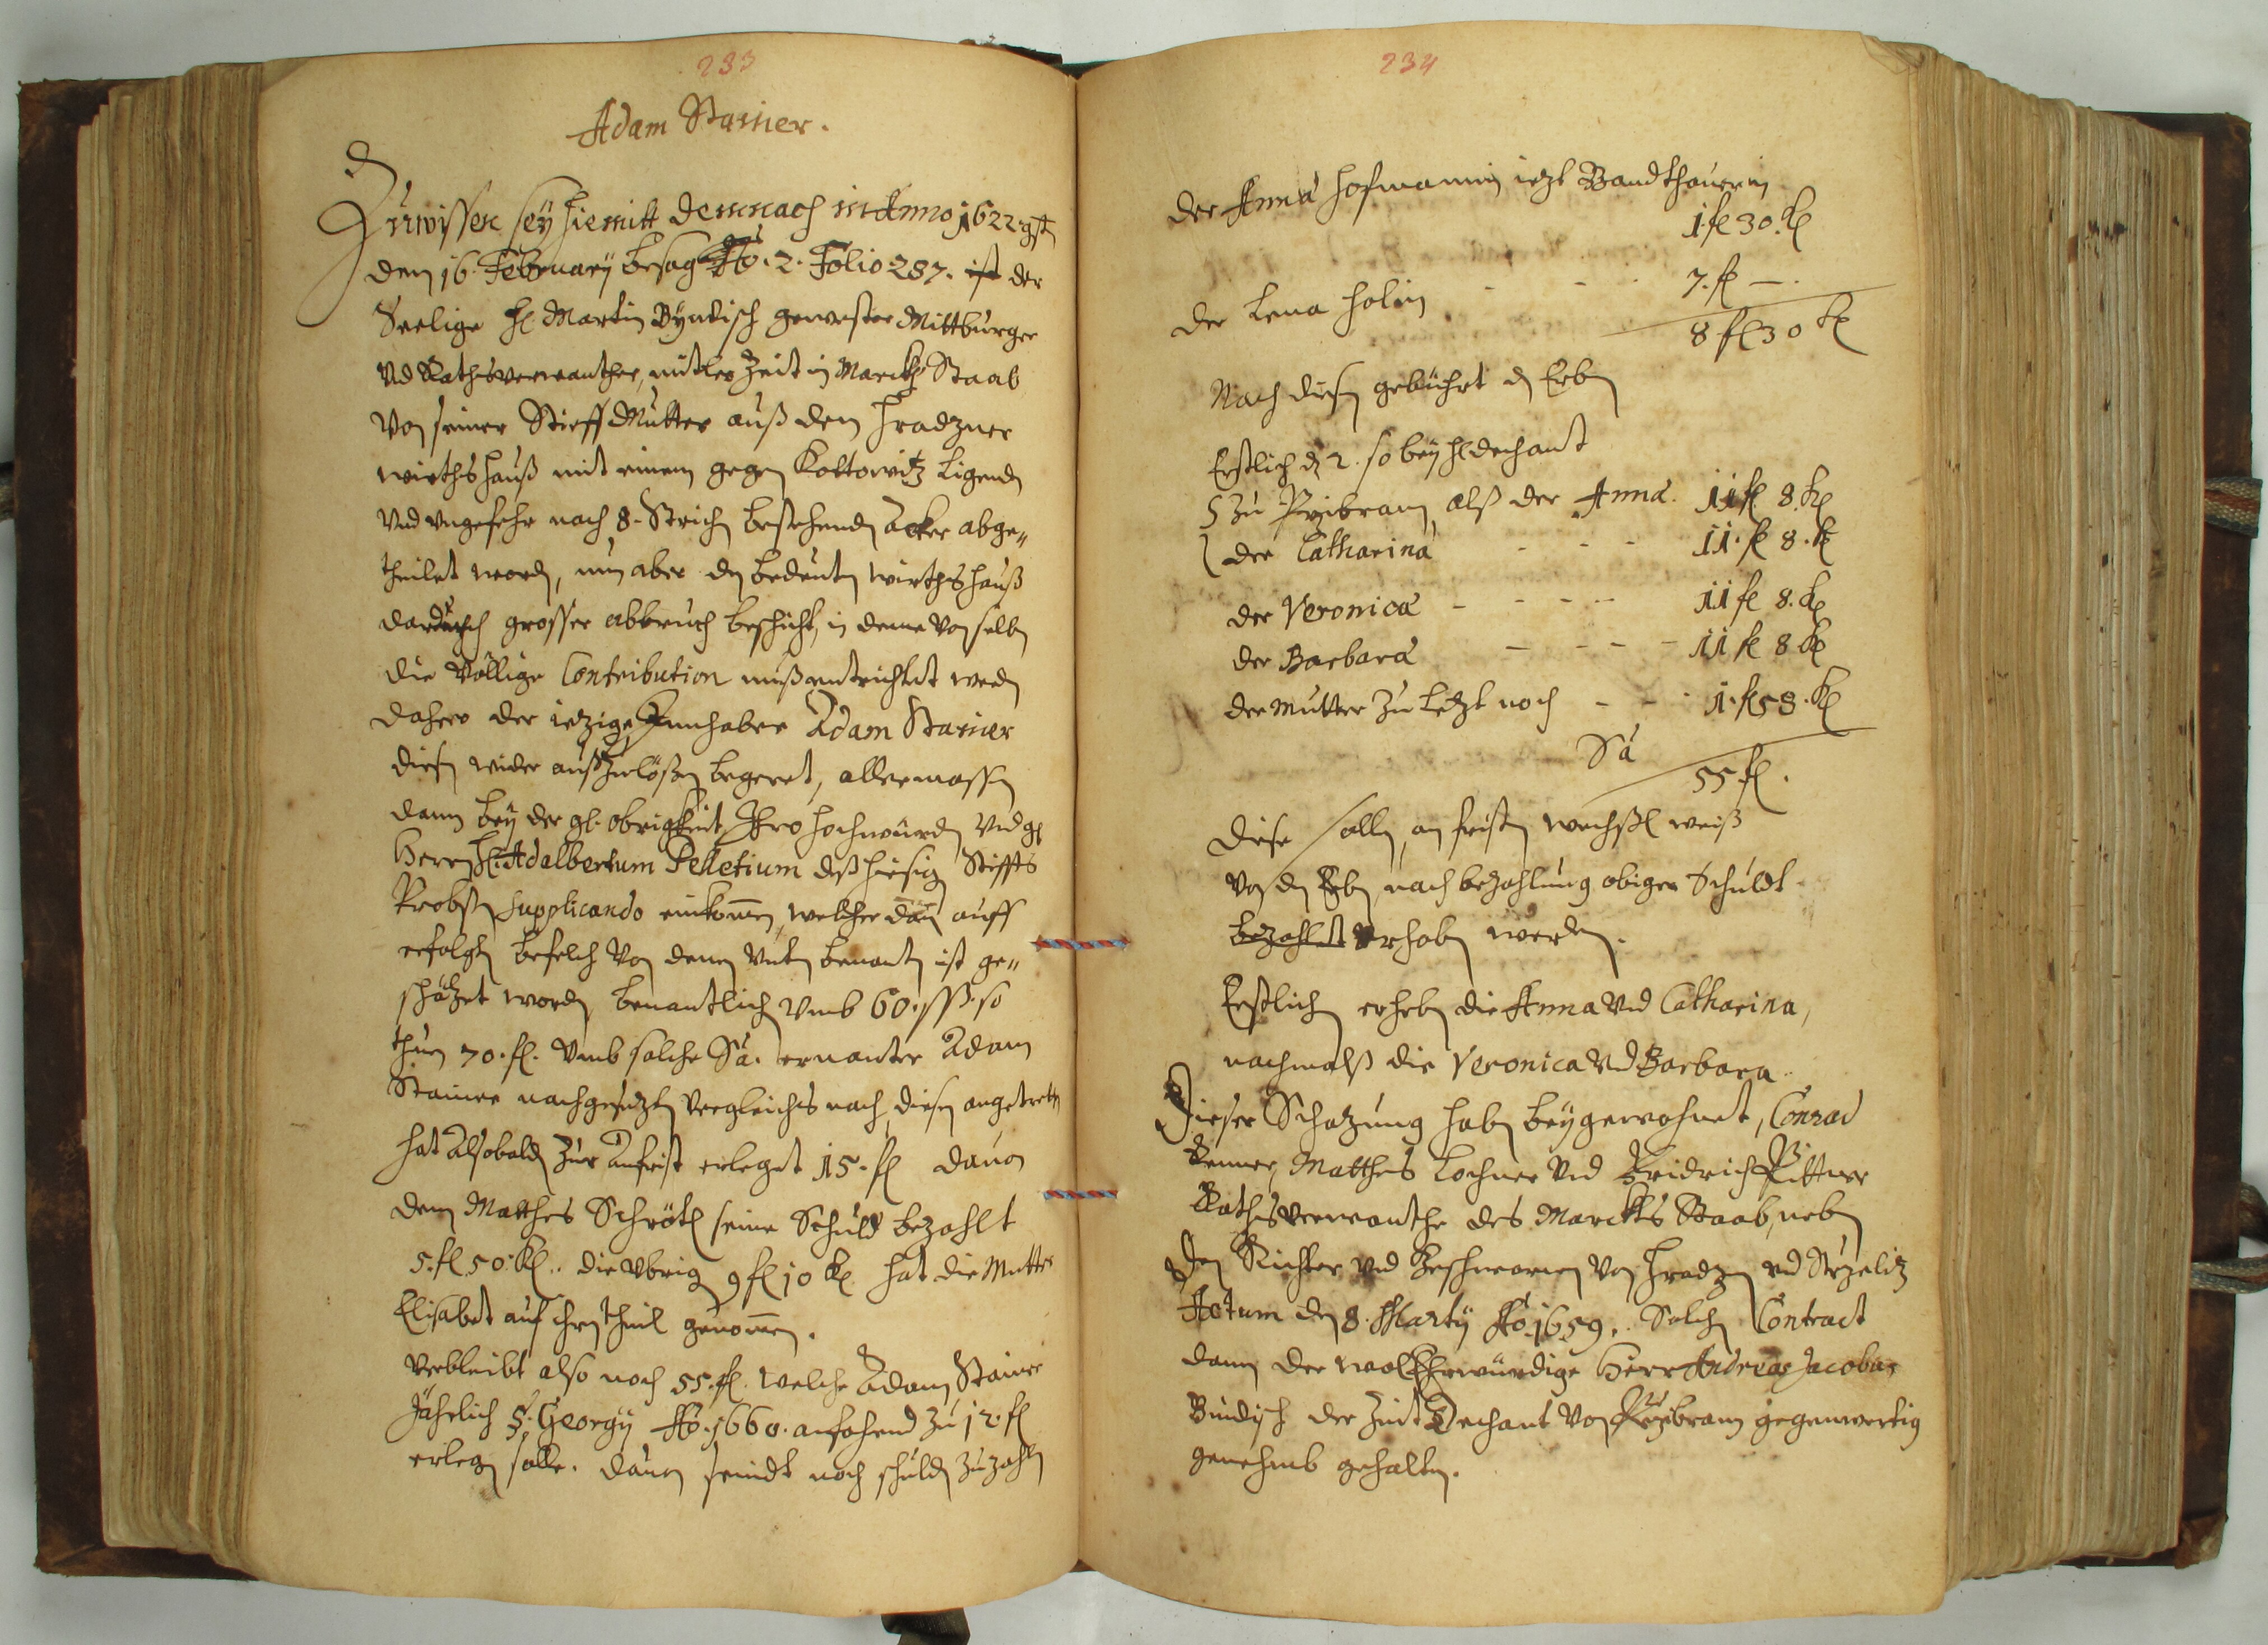 233
Adam Stainer.
Zu wissen sey hiemitt demnach in Anno 1622 gst
den 16. February besag Lib. 2. Folio 287. ist der
Seelige H. Martin Byndisch gewester Mittburger
Vnd Rathsverwanther, mitler Zeit in Marckh Staab
Von seiner Stieff Mutter auß dem Hradzner
wirthshauß mit einem gegen Kottowitz ligenden
Vnd vngefehr nach 8. Strich bestehenden Acker abge„
theilet worden, nun aber den bedeuten wirthshauß
dardurch grosser abbruch beschicht, in deme von selben
die Völlige Contribution muß entrichtet werden
dahero der ietzige Innhaber Adam Stainer
diesen wider außzulößen begeret, allermassen
dann bey der gl. obrigkeit Ihro Hochwürden Vnd gl
Herrn H. Adalbertum Pelletium deß hiesigen Stiffts
Probsten supplicando einkommen, welcher dann auff
erfolgten befelch Von denen Vnten benanten ist ge„
schätzet worden, benantlich Vmb 60. ßß. so
thuen 70. fl. Vmb solche Sa. ernanter Adam
Stainer nachgesetzten Vergleichs nach, diesen angetretten
hat Alsobalden Zur Anfrist erleget 15. fl davon
dem Matthes Schrötl seine Schuld bezahlt
5. fl 50. kl. die Vbrigen 9 fl 10 kl hat die Mutter
Elisabet auf ihren theil genommen.
Verbleibt also noch 55. fl. welche Adam Stainer
Jährlich S. Georgy Ao. 1660. anfahend zu 12. fl
erlegen solle. davon seindt noch schulden zuzahlen
234
der Anna Hofmannin ietzt Bandthauerin
1 fl 30. kl
der Lena Holin - - - 7. fl —.
8 fl 30 kl
Nach diesen gebührt den Erben
Erstlich den 2. so bey H. dechant
zu Przibram, alß der Anna. 11 fl 8. kl
der Catharina - - - 11. fl 8. kl
der Veronica - - - - 11 fl 8. kl
der Barbara - - - - 11 fl 8 kl
der Mutter zu Letzt noch - - - 1. fl 58. kl
Sa
55 fl.
Diese sollen an fristen wechßl weiß
Von den Erben, nach bezahlung obiger Schuldt
bezahlet erhoben werden.
Erstlich erheben die Anna Vnd Catharina,
nachmalß die Veronica Vnd Barbara.
Dieser Schatzung haben beygewohnet, Conrad
Renner, Matthes Lochner Vnd Fridrich Pittner
Rathsverwanthe des Marckts Staab, neben
den Richter Vnd Geschwornen Von Hradzen vnd Strzelitz
Actum den 8. Marty Ao. 1659. Solchen Contract
dann der wolEhrwürdige Herr Andreas Jacobus
Bindisch der Zeit Dechant Von Przibram gegenwertig
genehmb gehalten.